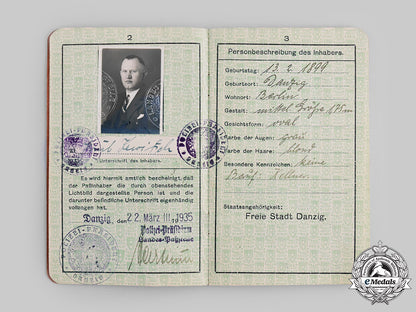 2
Unterschrift des Inhabers.
Es wird hiermit amtlich bescheinigt, daß
der Paßinhaber die durch obenstehendes
Lichtbild dargestellte Person ist und die
darunter befindliche Unterschrift eigenhändig
vollzogen hat.
Danzig, den 22. März 1935
Polizei-Präsidium
Landes-Paßzentrale
POLIZEI-PRÄSIDIUM
DANZIG
3
Personbeschreibung des Inhabers.
Geburtstag: 13. 2. 1899
Geburtsort: Danzig
Wohnort: Berlin
Gestalt: mittel Größe 175m
Gesichtsform: oval
Farbe der Augen: grau
Farbe der Haare: blond
Besondere Kennzeichen: keine
Beruf: Kellner
Staatsangehörigkeit:
Freie Stadt Danzig.
eMedals